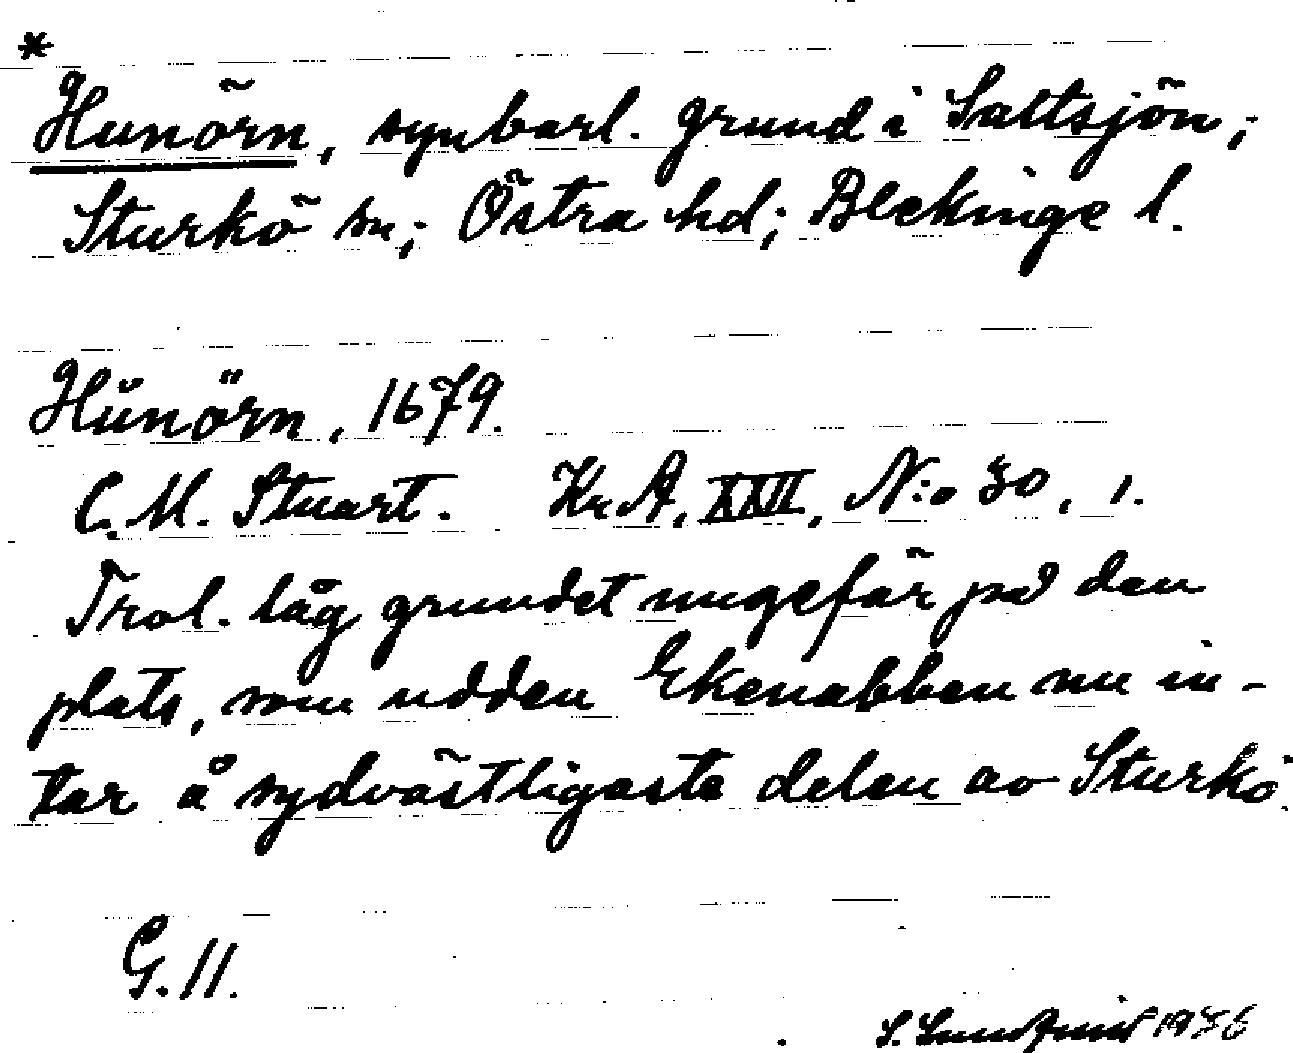 *
Hunörn, synbarl. grund i Saltsjön;
Sturkö sn; Östra hd; Blekinge l.
Hŭnörn, 1679.
C. M. Stuart. KrA, XXII, N:o 30, 1.
Trol. låg grundet ungefär på den
plats, som udden Ekenabben nu in-
tar å sydvästligaste delen av Sturkö.
G. 11.
S. Lundqvist